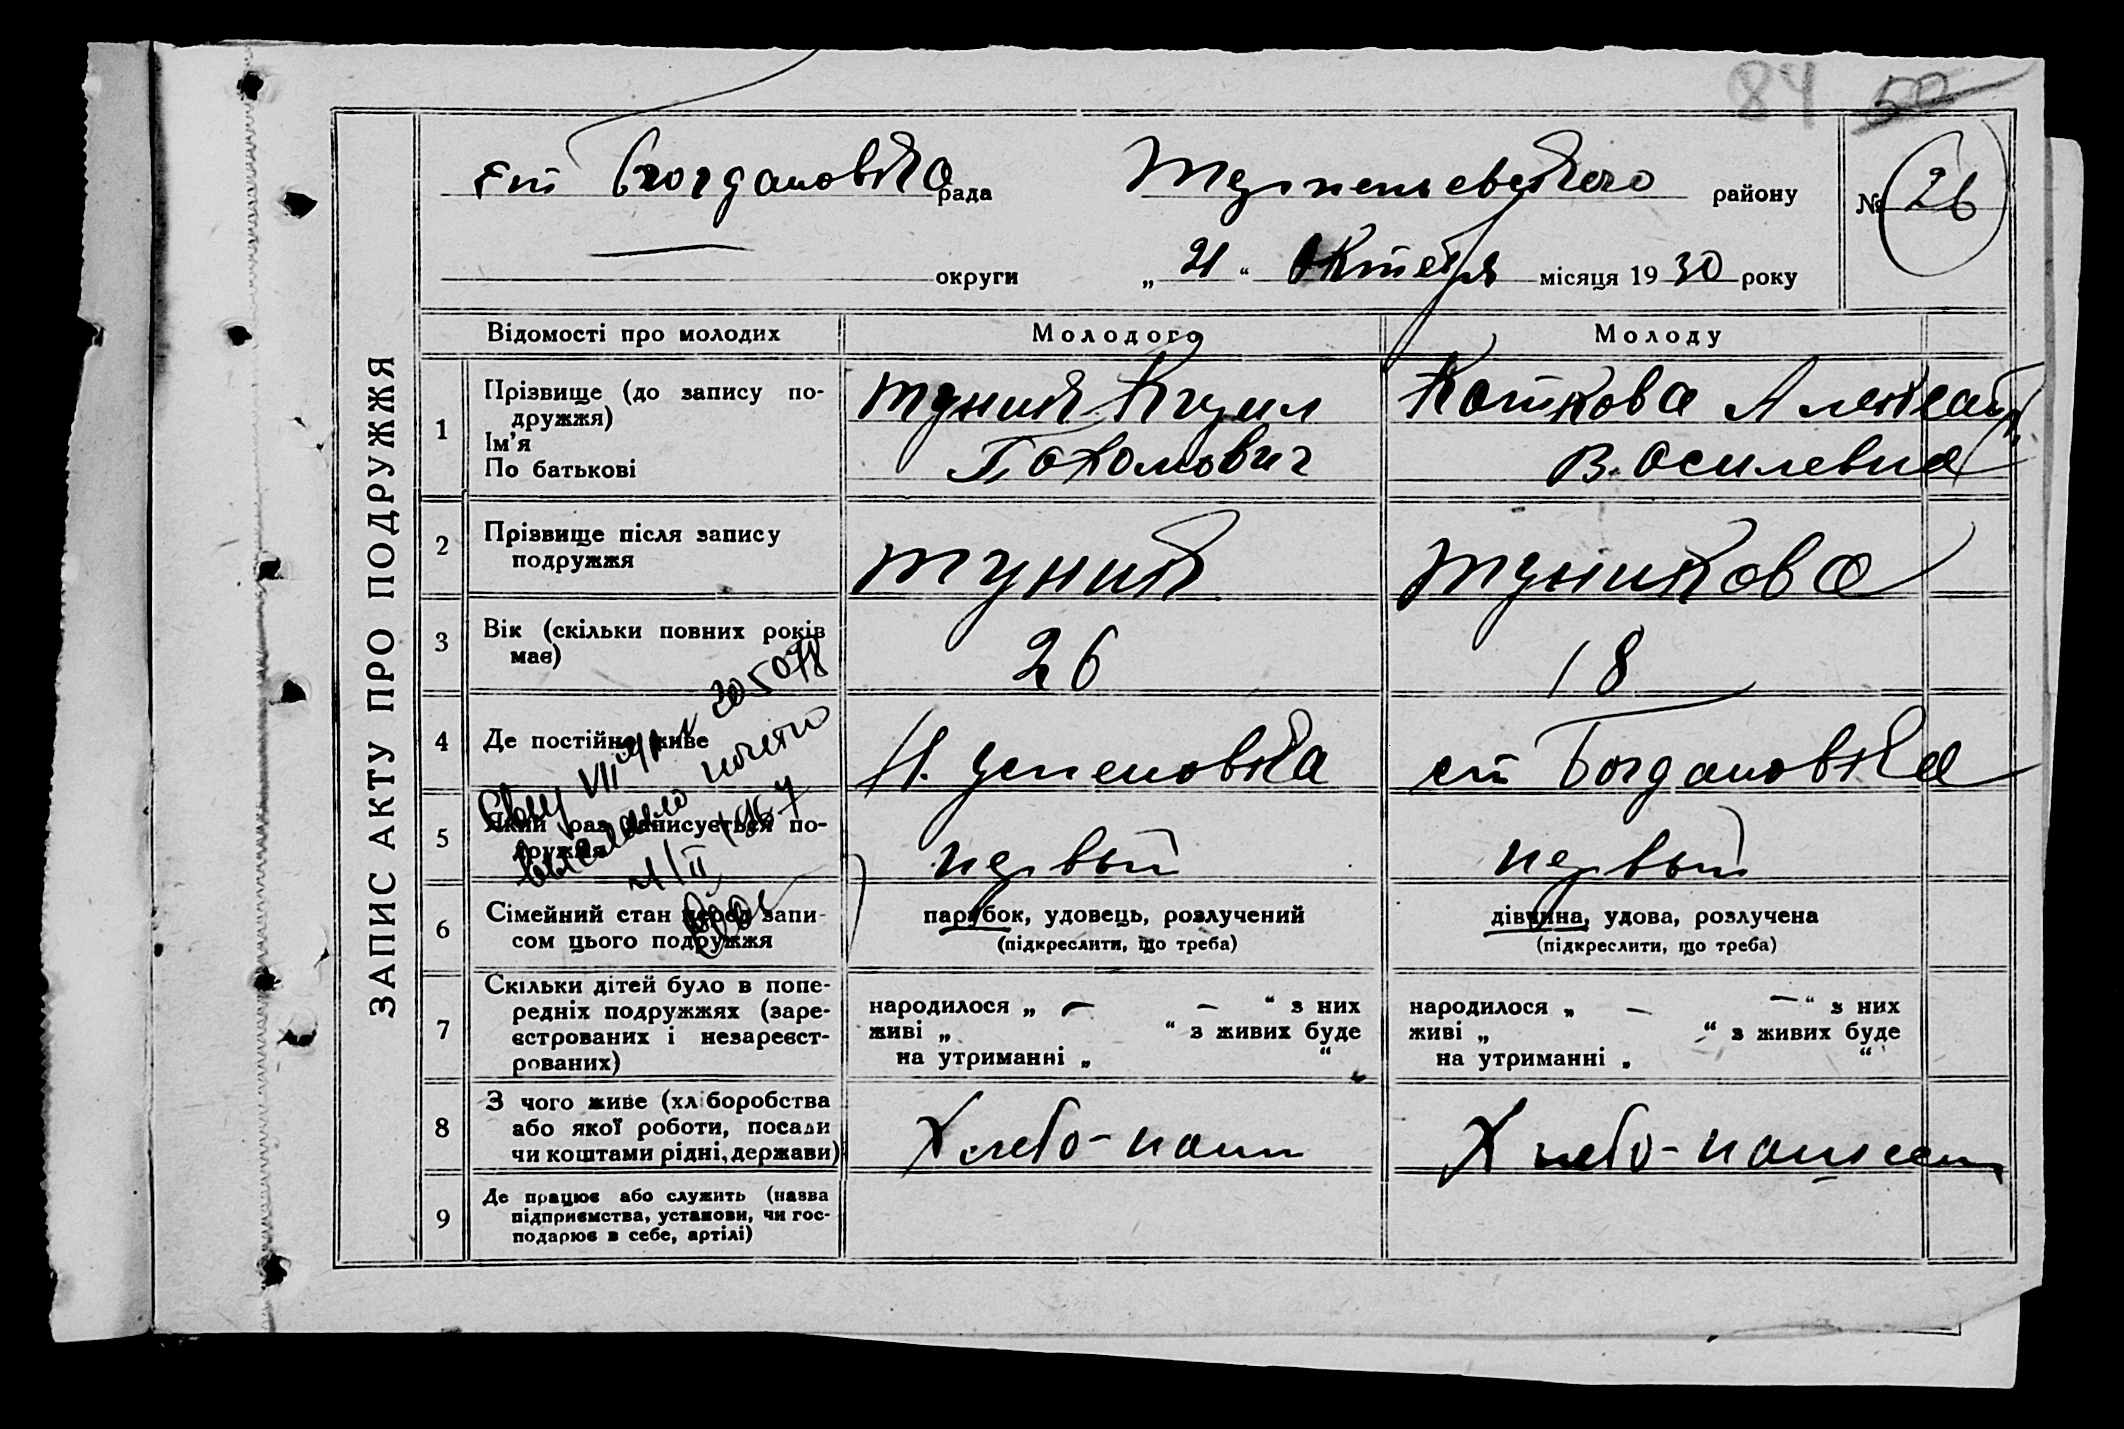 84 50
ст Богдановка рада района району № 26
округи „ 21 “ Октября місяця 19 30 року
ЗАПИС АКТУ ПРО ПОДРУЖЖЯ
Відомості про молодих Молодого Молоду
1 Прізвище (до запису по-
дружжя)
Ім’я
По батькові
Туник
Коткова
Василевна
2 Прізвище після запису
подружжя
Туник Туникова
3 Вік (скільки повних років
має)
26 18
4 Де постійно живе
Н. Успеновка ст Богдановка
5 Який раз записується по-
дружжя
первый первый
6 Сімейний стан перед запи-
сом цього подружжя
парубок, удовець, розлучений
(підкреслити, що треба)
дівчина, удова, розлучена
(підкреслити, що треба)
7 Скільки дітей було в попе-
редніх подружжях (заре-
єстрованих і незареєст-
рованих)
народилося „ — — “ з них
живі „ “ з живих буде
на утриманні „ “
народилося „ — — “ з них
живі „ “ з живих буде
на утриманні „ “
8 З чого живе (хліборобства
або якої роботи, посади
чи коштами рідні, держави)
Хлебо-паш Хлебо-пашест
9 Де працює або служить (назва
підприємства, установи, чи гос-
подарює в себе, артілі)